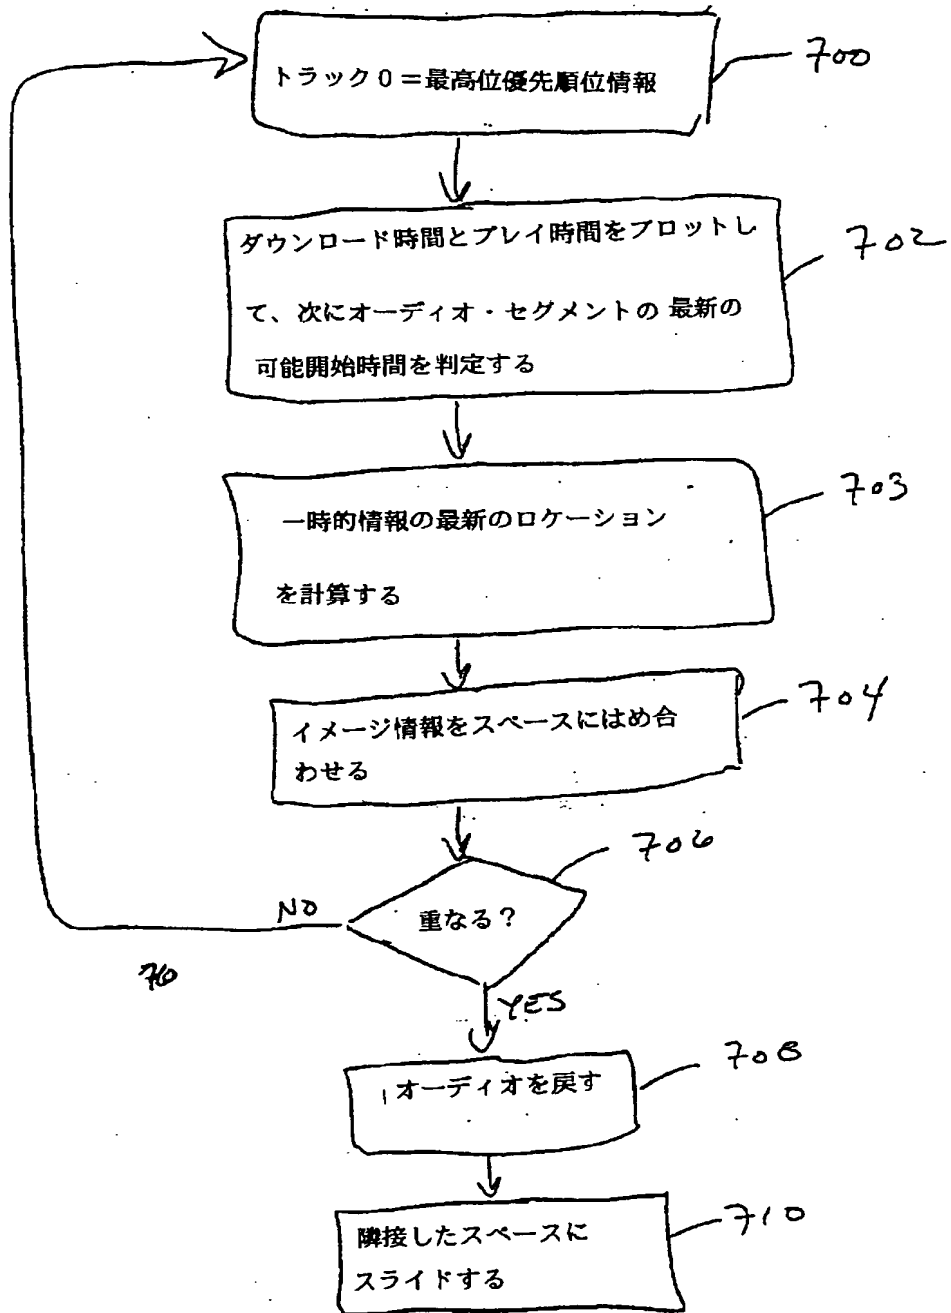 トラック0=最高位優先順位情報
700
ダウンロード時間とプレイ時間をプロットし
702
て、次にオーディオ・セグメントの 最新の
可能開始時間を判定する
703
一時的情報の最新のロケーション
を計算する
704
イメージ情報をスペースにはめ合
わせる
706
重なる?
NO
76
YES
708
オーディオを戻す
710
隣接したスペースに
スライドする